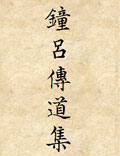 鐘呂傳道集